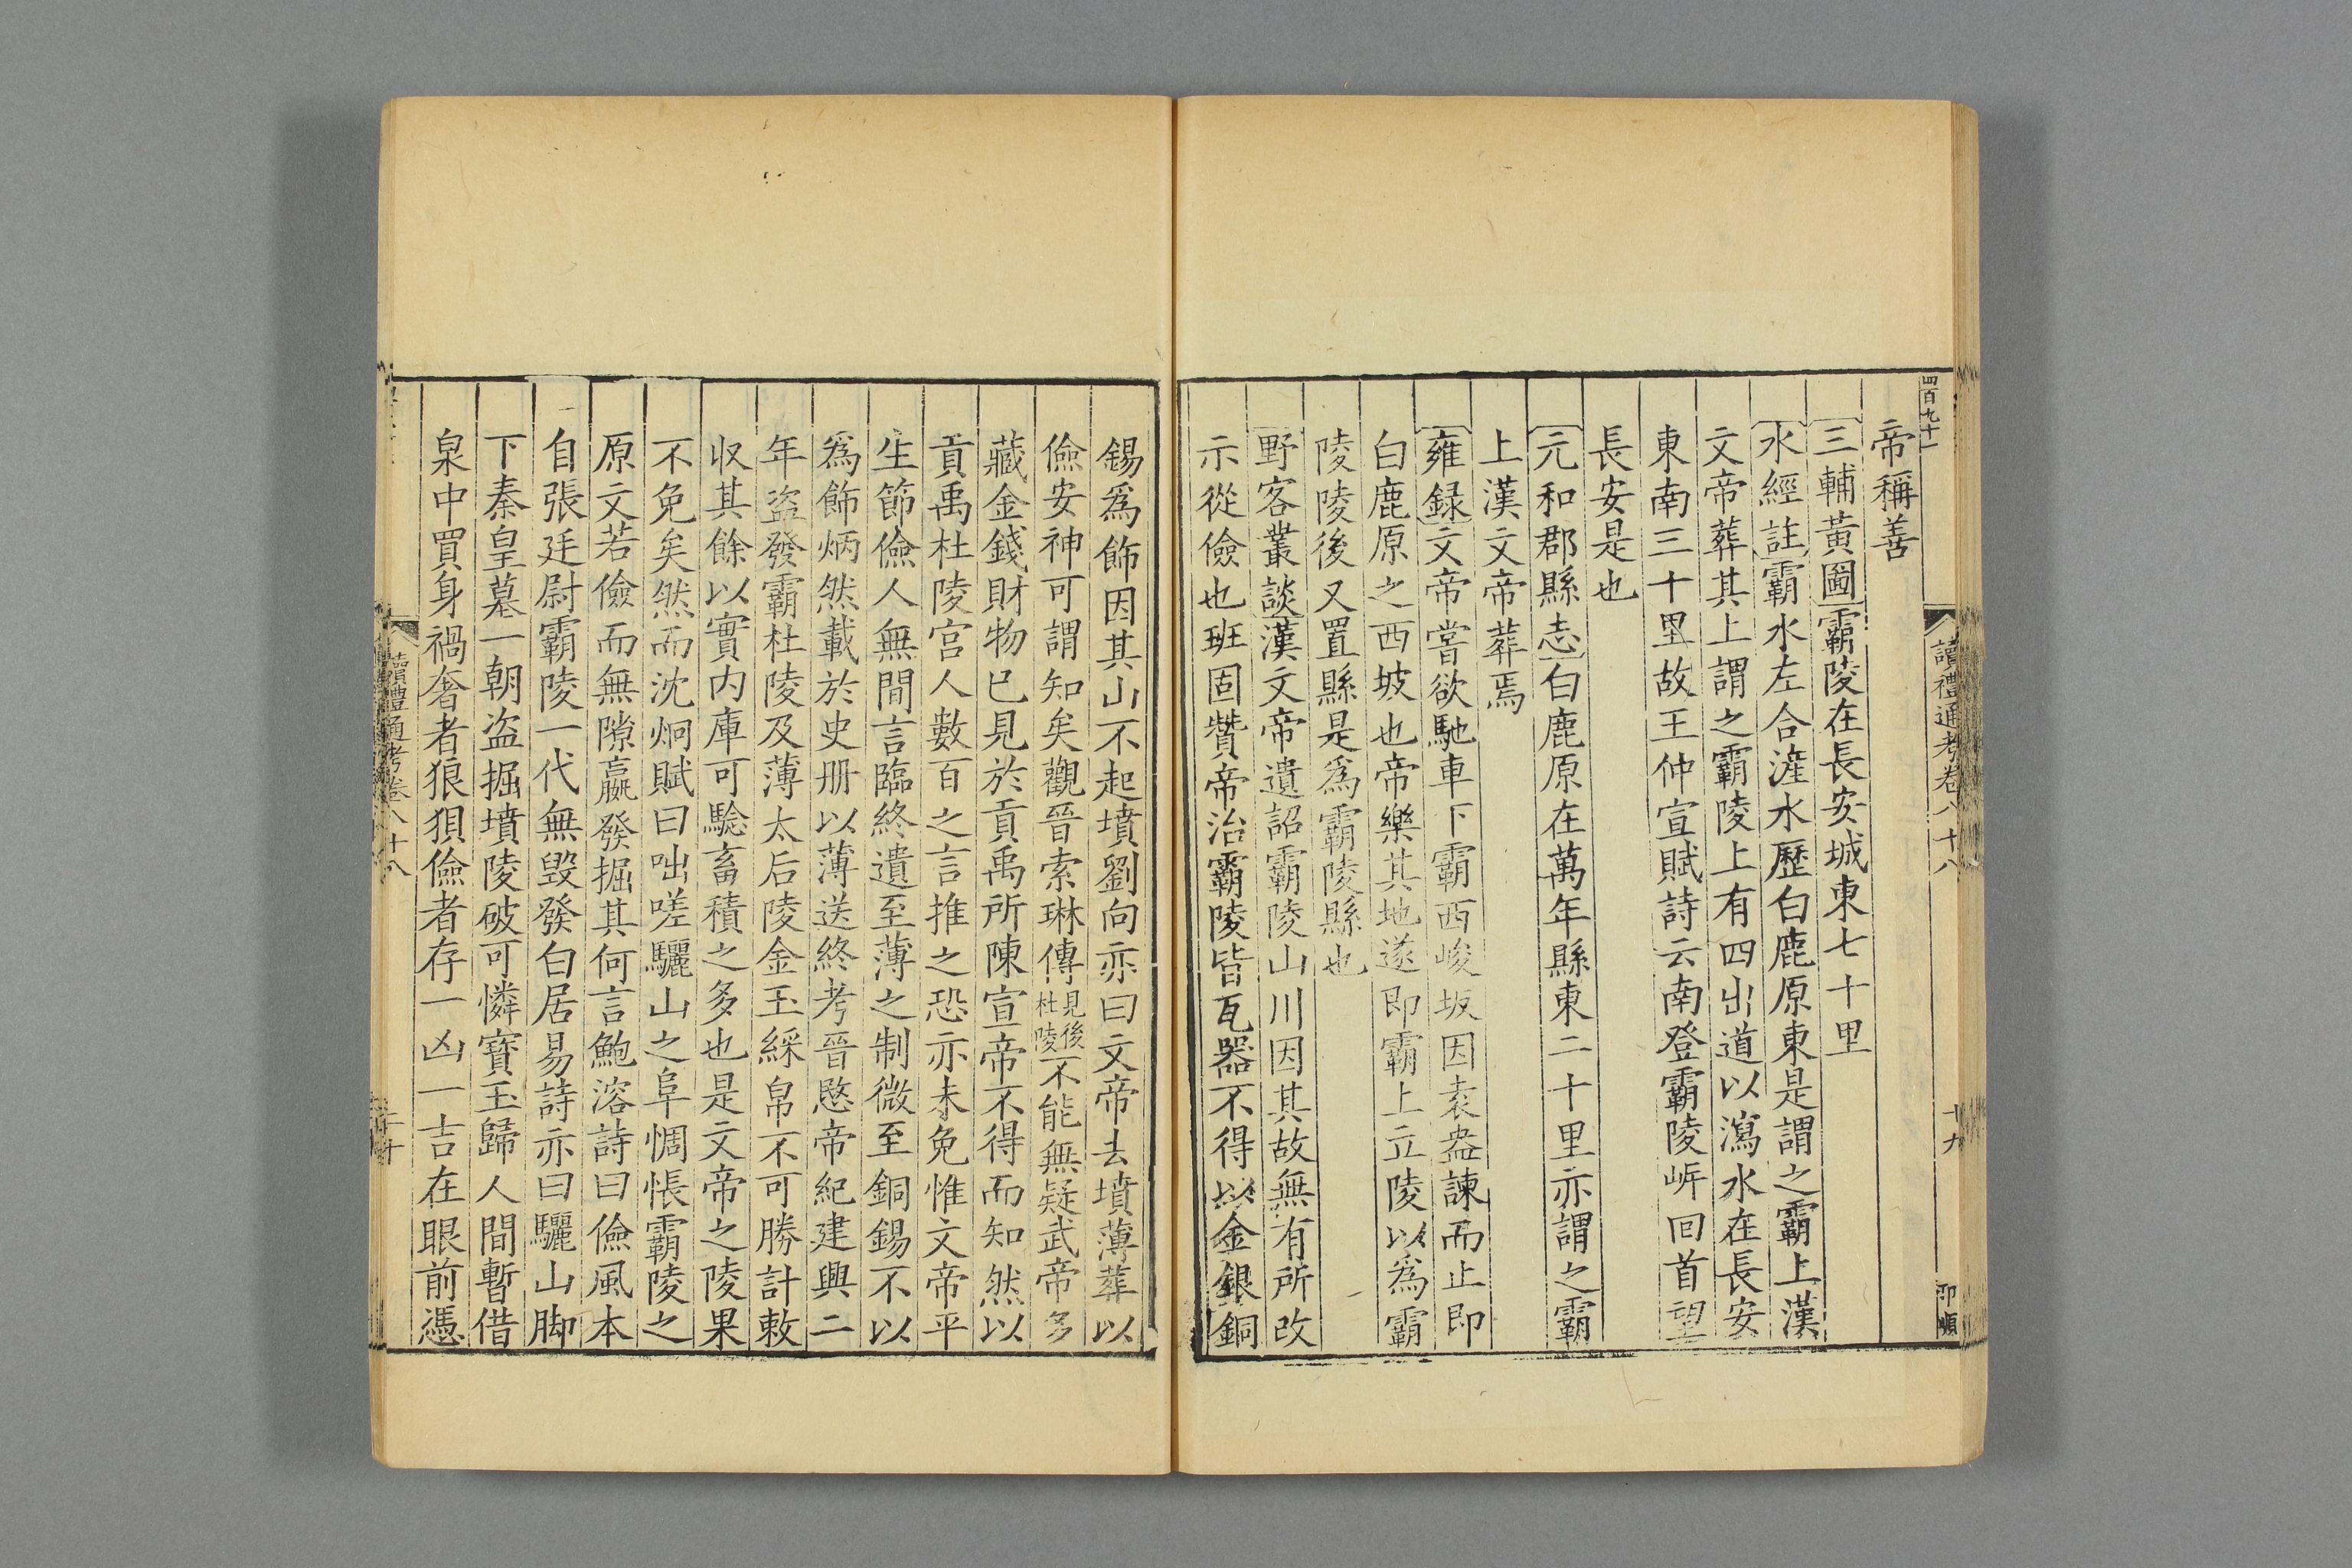 四百九十一
讀禮通考卷八十八
十九
帝稱善
三輔黃圖霸陵在長安城東七十里
水經註霸水左合滻水歷白鹿原東是謂之霸上漢
文帝葬其上謂之霸陵上有四出道以瀉水在長安
東南三十里故王仲宣賦詩云南登霸陵岍回首望
長安是也
元和郡縣志白鹿原在萬年縣東二十里亦謂之霸
上漢文帝葬焉
雍録文帝嘗欲馳車下霸西峻坂因袁盎諫而止即
白鹿原之西坡也帝樂其地遂即霸上立陵以爲霸
陵陵後又置縣是爲霸陵縣也
野客叢談漢文帝遺詔霸陵山川因其故無有所改
示從儉也班固贊帝治霸陵皆瓦器不得以金銀銅
錫爲飾因其山不起墳劉向亦曰文帝去墳薄葬以
儉安神可謂知矣觀晉索琳傳見後杜陵不能無疑武帝多
藏金錢財物已見於貢禹所陳宣帝不得而知然以
貢禹杜陵宮人數百之言推之恐亦未免惟文帝平
生節儉人無間言臨終遺至薄之制微至銅錫不以
爲飾炳然載於史册以薄送終考晉愍帝紀建興二
年盜發霸杜陵及薄太后陵金玉綵帛不可勝計敕
収其餘以實内庫可驗畜積之多也是文帝之陵果
不免矣然而沈炯賦曰咄嗟驪山之阜惆悵霸陵之
原文若儉而無隙嬴發掘其何言鮑溶詩曰儉風本
自張廷尉霸陵一代無毀發白居易詩亦曰驪山脚
下秦皇墓一朝盜掘墳陵破可憐寶玉歸人間暫借
泉中買身禍奢者狼狽儉者存一凶一吉在眼前憑
讀禮通考卷八十八
二十